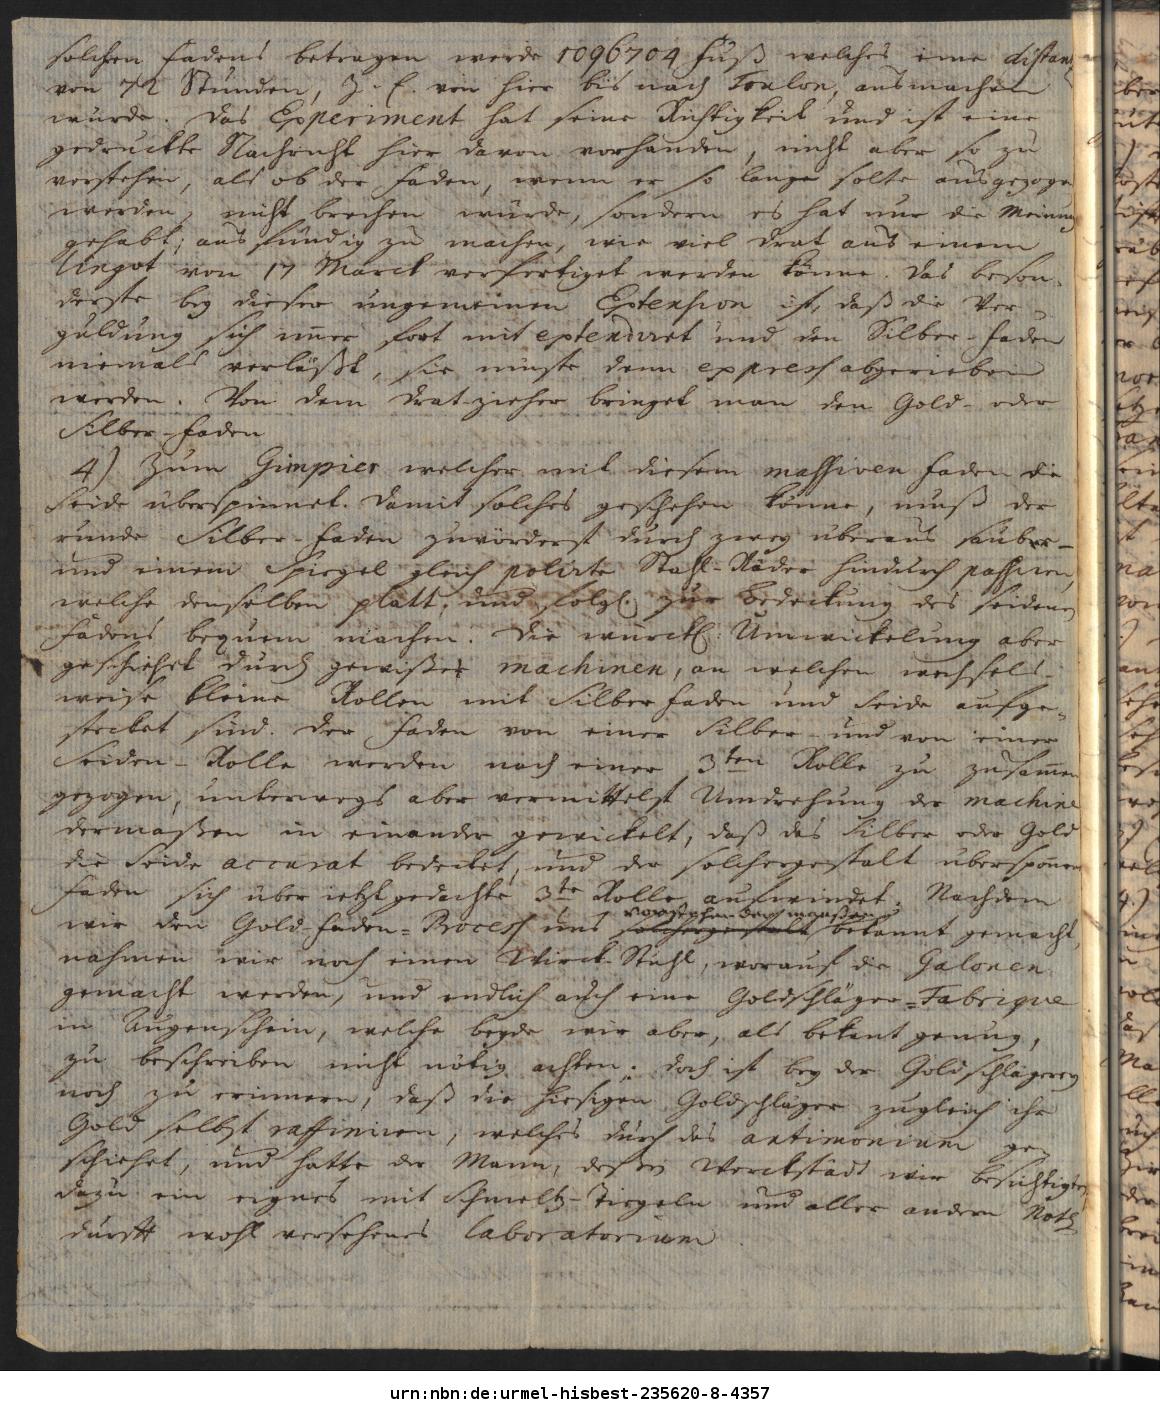 solchen Fadens betragen werde 1096704 Fuß welches eine distanz
von 72 Stunden, Z. E. von hier bis nach Toulon, ausmachen
wurde. Das Experiment hat seine Richtigkeit und ist eine
gedruckte Nachricht hier davon vorhanden, nicht aber so zu
verstehen, als ob der Faden, wenn er so lange solte ausgezogen
werden, nicht brechen würde, sondern es hat nur die Meinung
gehabt, ausfündig zu machen, wie viel Drat aus einem
Lingot von 17 Marck verfertiget werden könne. Das beson-
derste bey dieser ungemeinen Extension ist, daß die Ver-
guldung sich im̄er fort mit extendiret und den Silber-Faden
niemals verläßt, sie müste denn express abgerieben
werden. Von dem Drat-zieher bringet man den Gold- oder
Silber-Faden
4) Zum Gimpier welcher mit diesem massiven Faden die
Seide überspinnet. Damit solches geschehen könne, muß der
runde Silber-Faden zuvörderst durch zwey überaus saubere
und einem Spiegel gleich polirte Stahl-Räder hindurch passiren,
welche denselben platt, und folgl. zur Bedeckung des seidenen
Fadens bequem machen. Die würckl. Umwickelung aber
geschiehet durch gewiße machinen, an welchen wechsels-
weise kleine Rollen mit Silber Faden und Seide aufge-
stecket sind. Der Faden von einer Silber- und von einer
Seiden-Rolle werden nach einer 3ten Rolle zu zusam̄en
gezogen, unterwegs aber vermittelst Umdrehung der machine
dermaßen in einander gewickelt, daß das Silber oder Gold
die Seide accurat bedecket, und der solchergestalt überspoñene
Faden sich über ietzt gedachte 3te Rolle aufwindet. Nachdem
vorstehender maaßen
wir den Gold-Faden-Process uns solchergestalt bekannt gemacht,
nahmen wir noch einen Wirck-Stuhl, worauf die Galonen
gemacht werden, und endlich auch eine Goldschläger-Fabrique
in Augenschein, welche beyde wir aber, als bekant genug,
zu beschreiben nicht nötig achten. doch ist bey der Goldschlägerey
noch zu erinnern, daß die hiesigen Goldschläger zugleich ihr
Gold selbst raffiniren, welches durch das antimonium ge-
schiehet, und hatte der Mann, deßen Werckstadt wir besichtigten
dazu ein eignes mit Schmeltz-Tiegeln und aller andern Noth
durfft wohl versehenes laboratorium.
urn:nbn:de:urmel-hisbest-235620-8-4357